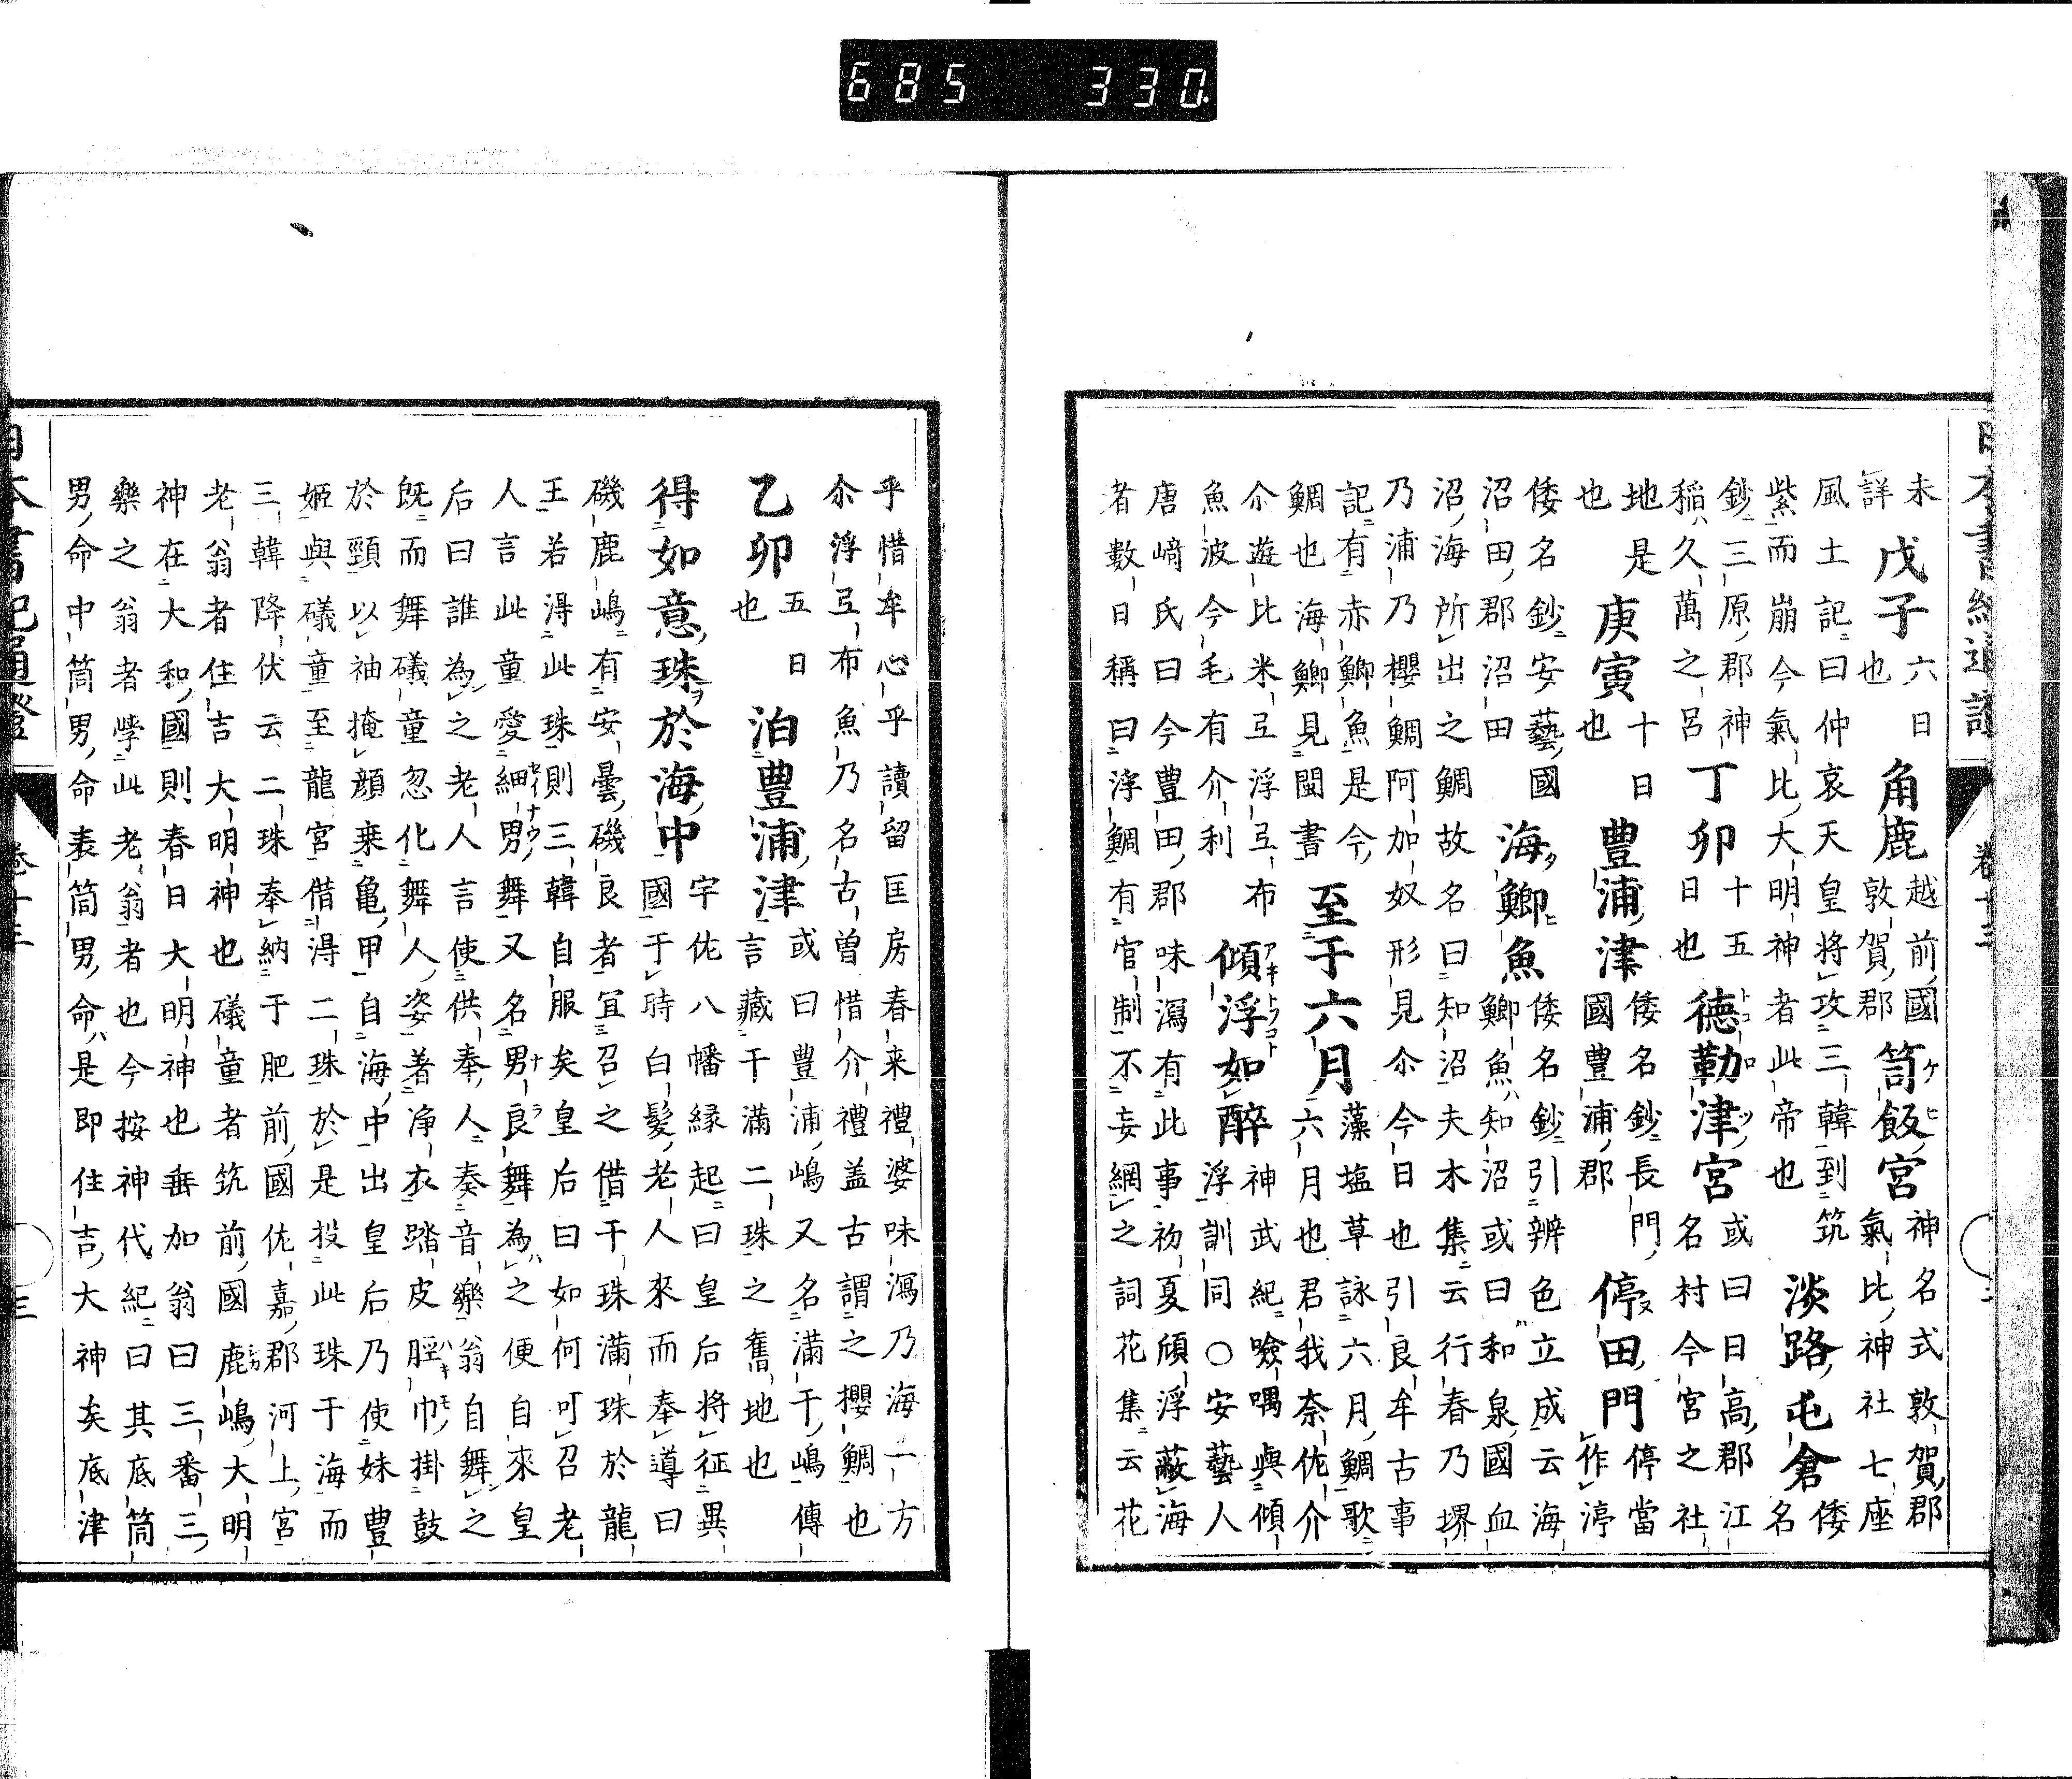 未詳戊子六日也角鹿越前國敦賀郡笥飯宮神名式敦賀郡氣比神社七座
風土記曰仲哀天皇將攻三韓到筑紫而崩今氣比大明神者此帝也淡路屯倉倭名
鈔三原郡神稲久萬之呂丁卯十五日也徳勒津宮或曰日高郡江名村今宮之社
地是也庚寅十日也豊浦津倭名鈔長門國豊浦郡停田門停當作渟
倭名鈔安藝國沼田郡沼田海鯽魚倭名鈔引辨色立成云海鯽魚知沼或曰和泉國血
沼海所出之鯛故名曰知沼夫木集云行春乃堺
乃浦乃櫻鯛阿加奴形見尒今日也引良牟古事
記有赤鯽魚是今鯛也海鯽見閩書至于六月藻塩草詠六月鯛歌六月也君我奈佐介
尒遊比米亙浮亙布魚波今毛有介利傾浮如醉神武紀噞喁與傾浮訓同○安藝人
唐﨑氏曰今豊田郡味瀉有此事初夏頎浮蔽海
者數日稱曰浮鯛有官制不妄網之詞花集云花
乎惜牟心乎讀留匡房春来禮婆味瀉乃海一方
尒浮亙布魚乃名古曽惜介禮盖古謂之櫻鯛也
乙卯五日也泊豊浦津或曰豊浦嶋又名満干嶋傳言藏干満二珠之舊地也
得如意珠於海中宇佐八幡縁起曰皇后将征異國于時白髮老人來而奉導曰
磯鹿嶋有安曇磯良者宜召之借干珠満珠於龍
王若得此珠則三韓自服矣皇后曰如何可召老
人言此童愛細男舞又名男良舞為之便自來皇
后曰誰為之老人言使供奉人奏音樂翁自舞之
既而舞礒童忽化舞人姿著浄衣踏皮脛巾掛鼓
於頸以袖掩顔乗亀甲自海中出皇后乃使妹豊
姫與礒童至龍宮借得二珠於是投此珠于海而
三韓降伏云二珠奉納于肥前國佐嘉郡河上宮
老翁者住吉大明神也礒童者筑前國鹿嶋大明
神在大和國則春日大明神也垂加翁曰三番三
樂之翁者學此老翁者也今按神代紀曰其底筒
男命中筒男命表筒男命是即住吉大神矣底津
日本書紀通證
巻十三
三
685 330